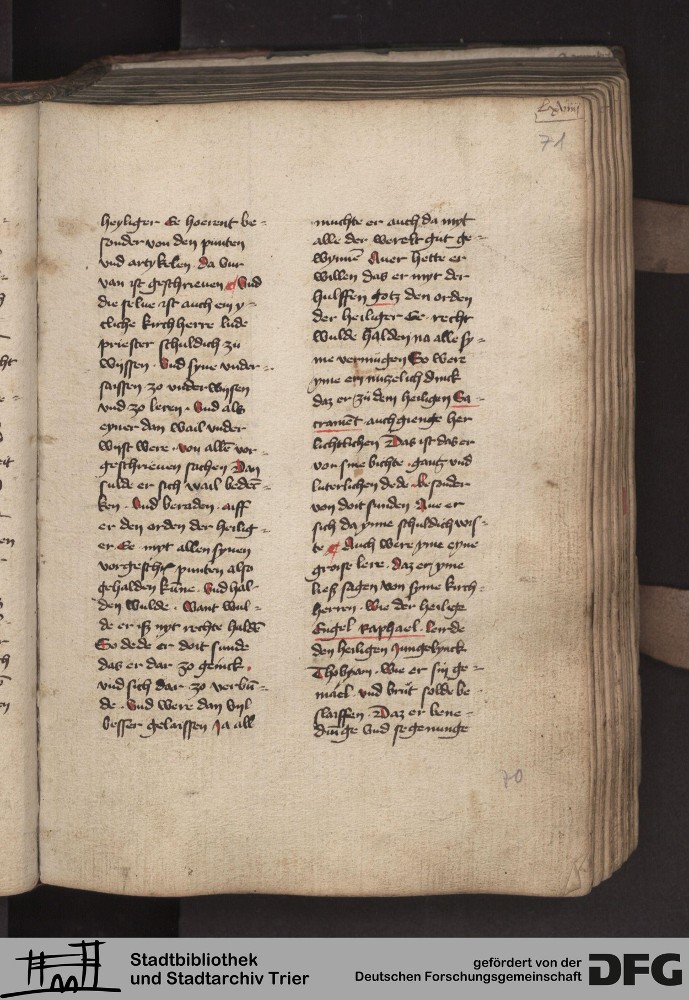 Lxviiii
71
heyliger Ee hoerent be-
sonder von den punten
vnd artykelen. da vur
van ist geschrieuen Vnd
die selue ist auch eyn y-
cliche kirchherre lude
priester schuldich zu
wyssen. Vnd syne vnder-
saissen zo vnderwysen
vnd zo leren. Vnd als
eyner dan wail vnder
wyst were. von allē vor-
geschrieuen sachen Dan
sulde er sich wail beden-
ken. Vnd beraden. aiff
er den orden der heilig-
er Ee myt allen synen
vorgeschr punten also
gehalden kūne. Vnd hal-
den wulde. Want wul-
de er iß nyt rechte haldē
So dede er doit sunde
das er dar zo genick.
vnd sich dar zo verbū-
de. Vnd were dan vyl
besser gelaissen Ja all
muchte er auch da myt
alle der werelt gut ge-
wynnē Auer hette er
willen das er myt der
hulffen gotz den orden
der heiliger Ee recht
wulde halden na alle sy-
me vermugen So were
yme eyn nutzelich dinck
daz er zu dem heiligen Sa-
cramēt auch gienge her
lichtlichen Das ist das er
von sine bichte. gantz vnd
luterlichen dede. besonder
von doit sunden Aue er
sich da ynne schuldich wis-
te Auch were yme eyne
groise lere. daz er yme
ließ sagen von syme kirch-
herren. wie der heilige
Engel Raphael. lerde
den heiligen Jungelynck
Thobyam. wie er sin ge-
mael vnd brut solde be-
slaiffen. Daz er bene-
dunge vnd segenunge
70
Stadtbibliothek
und Stadtarchiv Trier
gefördert von der
Deutschen Forschungsgemeinschaft
DFG